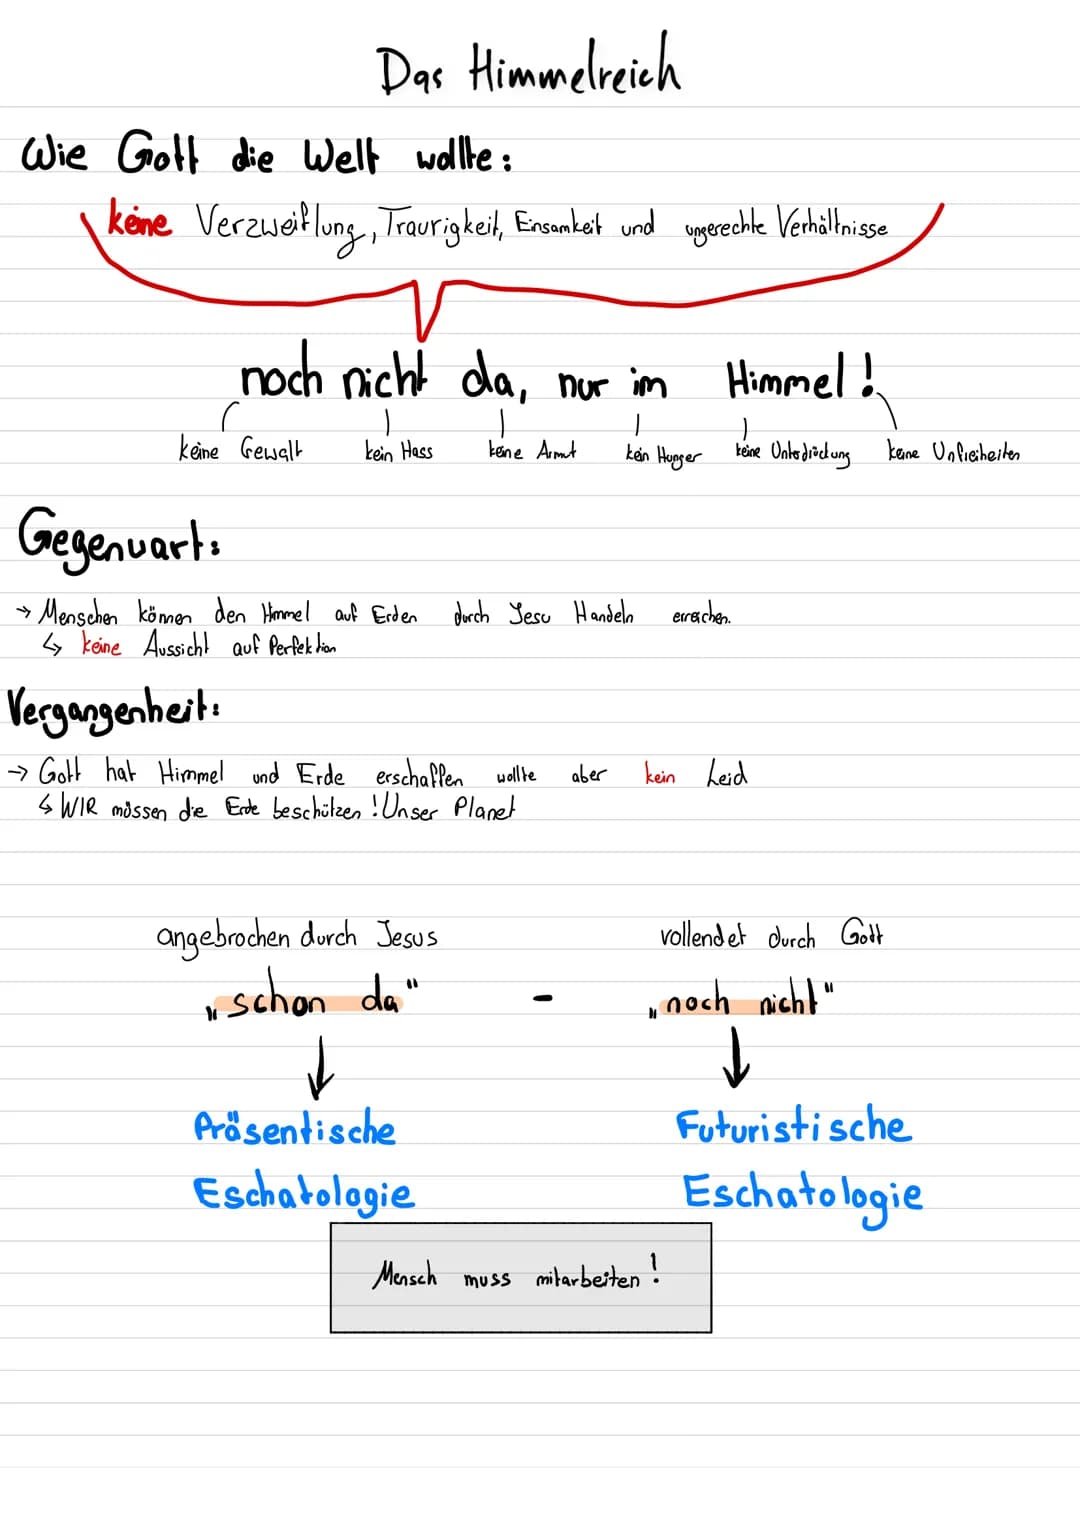 Das Himmelreich
Wie Gott die Welt wollte:
keine Verzweiflung, Traurigkeit, Einsamkeit und ungerechte Verhältnisse
noch nicht da, nur im Himmel!
keine Gewalt kein Hass keine Armut kein Hunger keine Unterdrückung keine Unfreiheiten
Gegenwart:
→ Menschen können den Himmel auf Erden durch Jesu Handeln erreichen.
↳ keine Aussicht auf Perfektion
Vergangenheit:
→ Gott hat Himmel und Erde erschaffen wollte aber kein Leid
↳ WIR müssen die Erde beschützen! Unser Planet
angebrochen durch Jesus vollendet durch Gott
„schon da" - „noch nicht"
Präsentische Futuristische
Eschatologie Eschatologie
Mensch muss mitarbeiten!